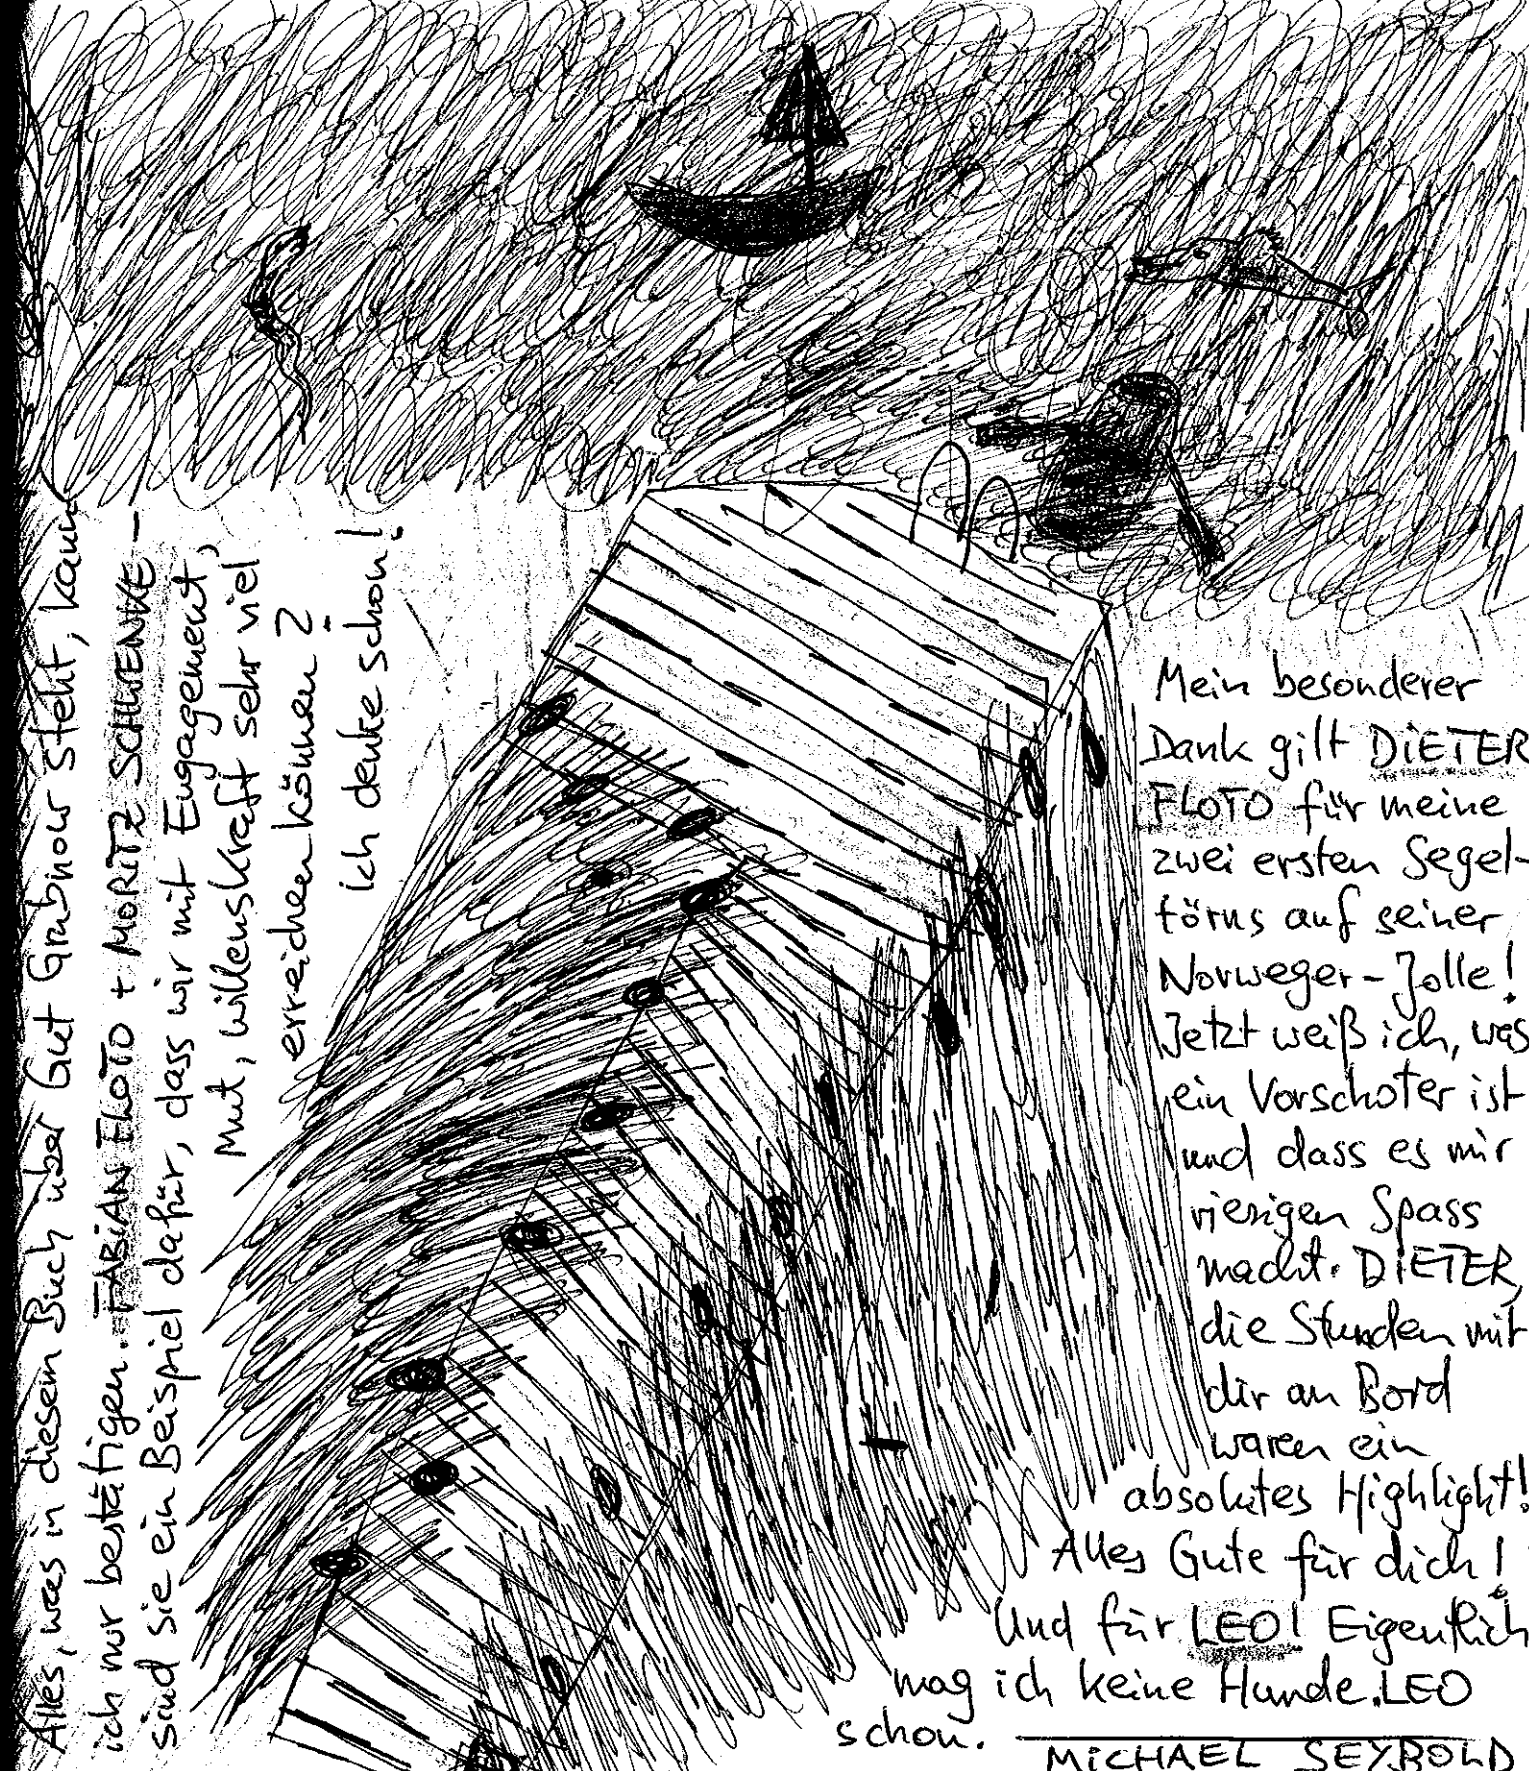 Alles, was in diesem Buch über Gut Grubnow steht, kann
ich nur bestätigen. FABiAN FLOTO + MORiTZ SCHWENKE –
sind sie ein Beispiel dafür, dass wir mit Engagement,
Mut, Willenskraft sehr viel
erreichen können?
ich denke schon!
Mein besonderer
Dank gilt DiETER
FLOTO für meine
zwei ersten Segel-
törns auf seiner
Norweger-Jolle!
Jetzt weiß ich, was
ein Vorschoter ist
und dass es mir
riesigen Spass
macht. DiETER,
die Stunden mit
dir an Bord
waren ein
absolutes Highlight!
Alles Gute für dich!
Und für LEO! Eigentlich
mag ich keine Hunde. LEO
schon.
MiCHAEL SEYBOLD